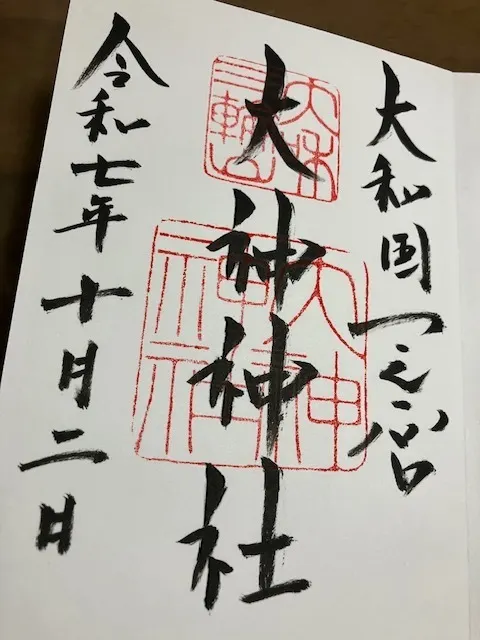 大和国一之宮
大神神社
令和七年十月二日
大和
三輪山
大神
神社